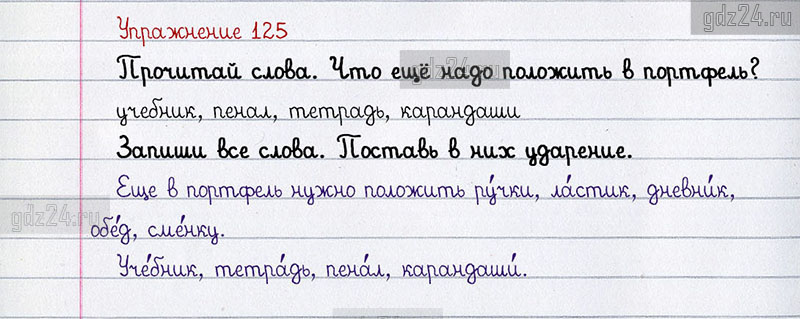 gdz24.ru
Упражнение 125
Прочитай слова. Что ещё надо положить в портфель?
gdz24.ru
учебник, пенал, тетрадь, карандаши
Запиши все слова. Поставь в них ударение.
Еще в портфель нужно положить ру́чки, ла́стик, дневни́к,
gdz24.ru
обе́д, сме́нку.
Уче́бник, тетра́дь, пена́л, карандаши́.